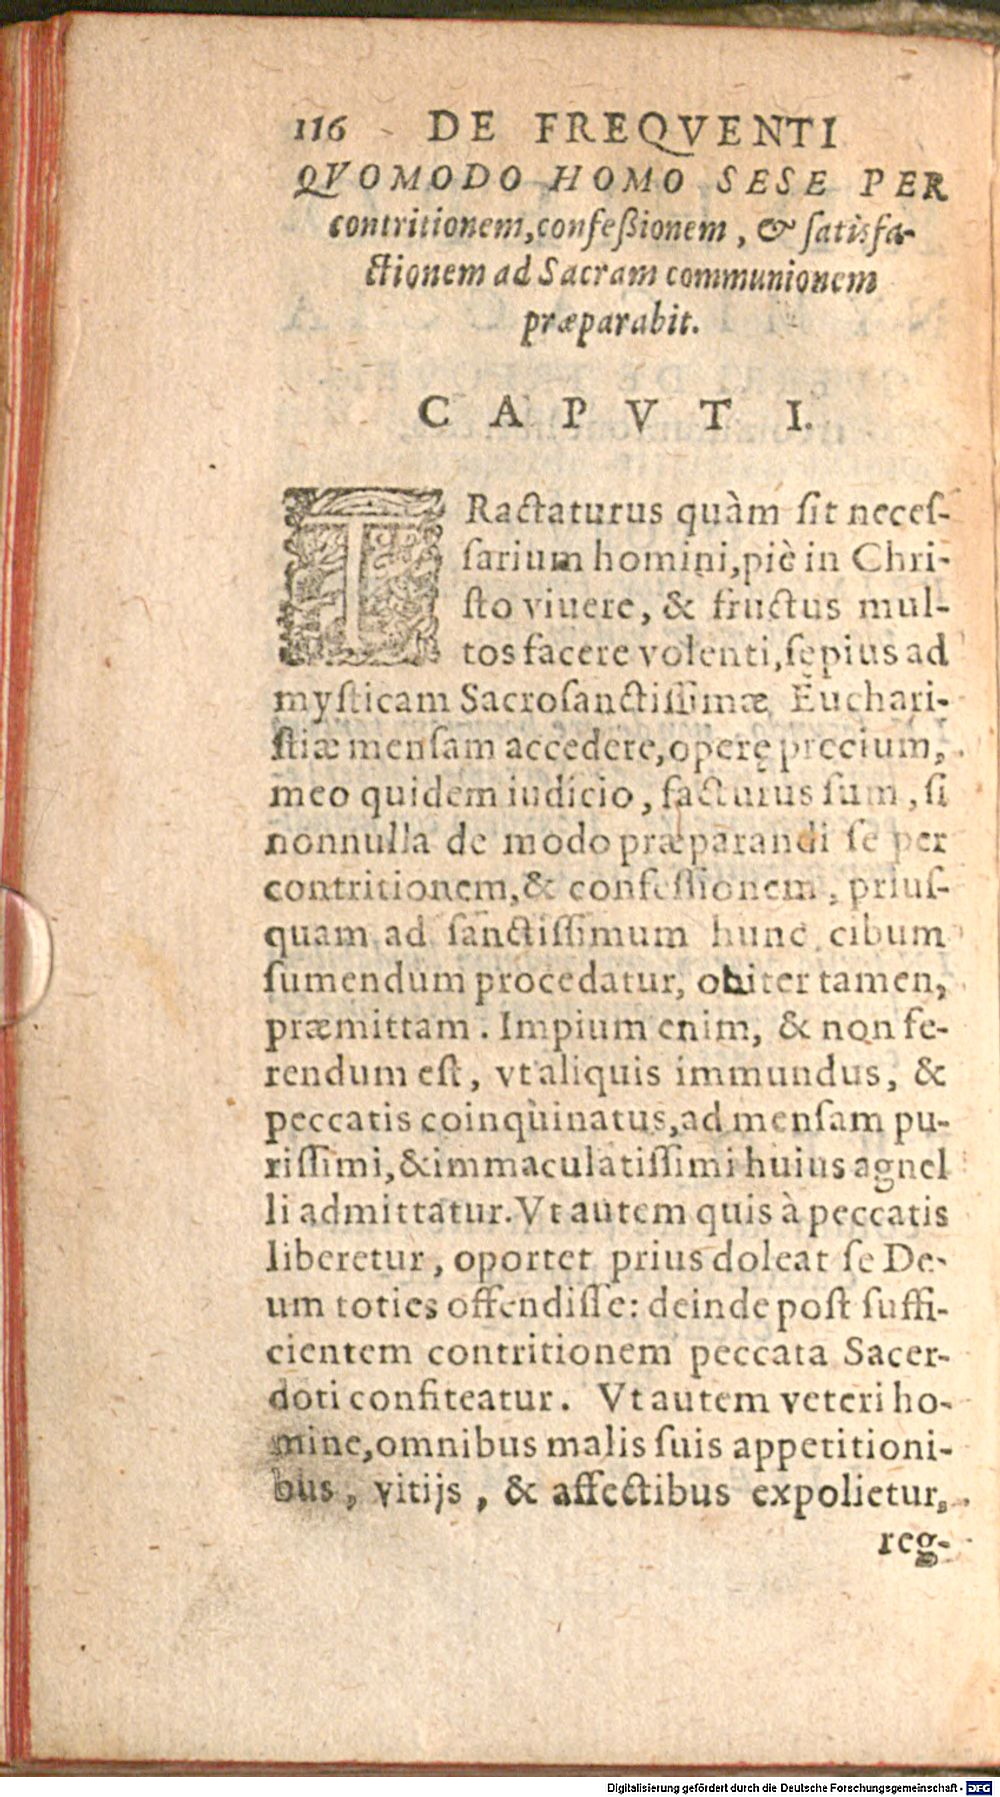 116 DE FREQVENTI
QVOMODO HOMO SESE PER
contritionem, confeßionem, & ſatisfa-
ctionem ad Sacram communionem
præparabit.
CAPVT I.
TRactaturus quàm ſit neceſ-
ſarium homini, piè in Chri-
ſto viuere, & fructus mul-
tos facere volenti, ſępius ad
myſticam Sacroſanctiſſimæ Euchari-
ſtiæ menſam accedere, operę precium,
meo quidem iudicio, facturus ſum, ſi
nonnulla de modo præparandi ſe per
contritionem, & confeſſionem, priuſ-
quam ad ſanctiſſimum hunc cibum
ſumendum procedatur, obiter tamen,
præmittam. Impium enim, & non fe-
rendum eſt, vt aliquis immundus, &
peccatis coinquinatus, ad menſam pu-
riſſimi, & immaculatiſſimi huius agnel
li admittatur. Vt autem quis à peccatis
liberetur, oportet prius doleat ſe De-
um toties offendiſſe: deinde poſt ſuffi-
cientem contritionem peccata Sacer-
doti confiteatur. Vt autem veteri ho-
mine, omnibus malis ſuis appetitioni-
bus, vitijs, & affectibus expolietur,
reg-
Digitalisierung gefördert durch die Deutsche Forschungsgemeinschaft - DFG